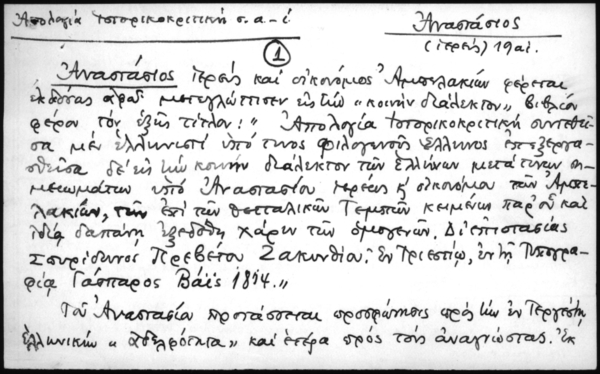 Ἀπολογία Ἱστορικοκριτική σ. α-ί
Ἀναστάσιος
(ἱερεύς) 19 αἰ.
1
Ἀναστάσιος ἱερεύς καί οἰκονόμος Ἀμπελακιών φέρεται
ἐκδόσας ἀφοῦ μετεγλώττισεν εἰς τήν «κοινήν διάλεκτον» βιβλίον
φέρον τόν ἑξῆς τίτλον: "Ἀπολογία Ἱστορικοκριτική συντεθεῖ-
σα μέν ἑλληνιστί ὑπό τινος φιλογενοῦς Ἕλληνος ἐπεξεργα-
σθεῖσα δέ εἰς τήν κοινήν διάλεκτον τῶν Ἑλλήνων μετά τινων ση-
μειωμάτων ὑπό Ἀναστασίου ἱερέως κ' οἰκονόμου τῶν Ἀμπε-
λακίων, τῶν ἐπί τῶν Θετταλικῶν Τεμπῶν κειμένων παρ' οὗ καί
ἰδίᾳ δαπάνῃ ἐξεδόθη χάριν τῶν ὁμογενῶν. Δι' ἐπιστασίας
Σπυρίδωνος Πρεβέτου Ζακυνθίου. Ἐν Τριεστίῳ, ἐν τῇ Τυπογρα-
φίᾳ Γάσπαρος Βάϊς 1814."
Τοῦ Ἀναστασίου προτάσσεται προσφώνησις πρός τήν ἐν Τεργέστῃ
ἑλληνικήν «ἀδελφότητα» καί ἑτέρα πρός τούς ἀναγνώστας. Ἐκ